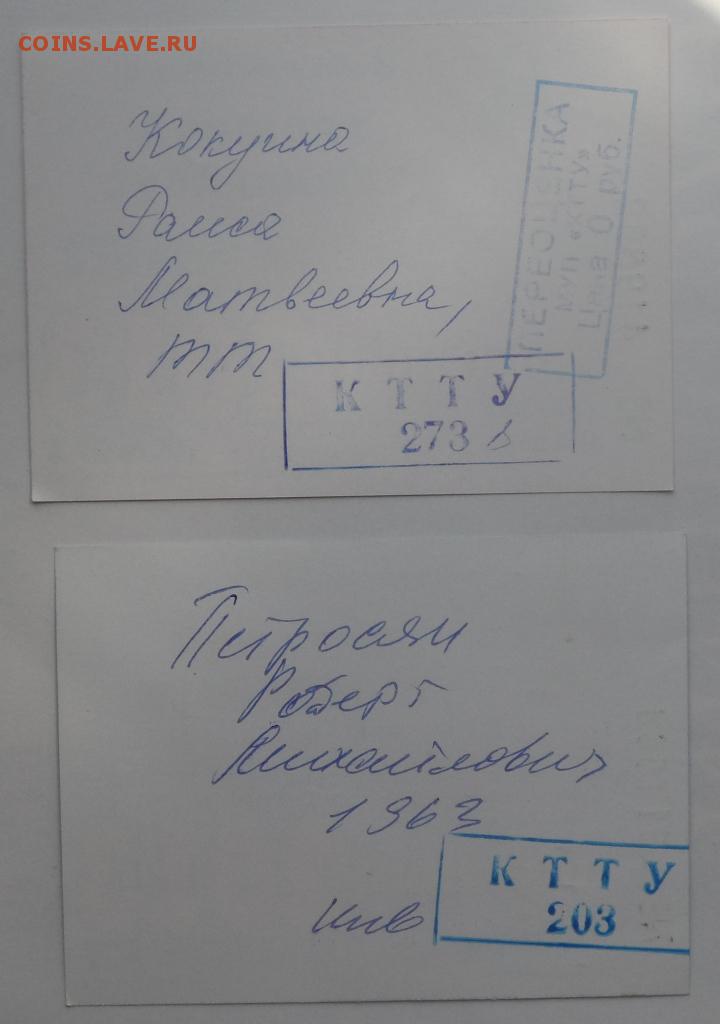 COINS.LAVE.RU
Кокуина
Раиса
Матвеевна,
тт
ПЕРЕОЦЕНКА
МУП «ХТТУ»
Цена 0 руб.
К Т Т У
273
Петросян
Роберт
Михайлович
1963
К Т Т У
203